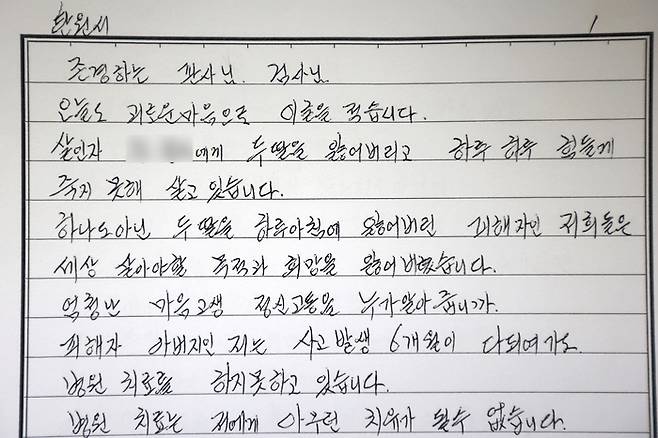 탄원서 1
존경하는 판사님. 검사님.
오늘도 괴로운 마음으로 이글을 적습니다.
살인자 에게 두딸을 잃어버리고 하루 하루 힘들게
죽지 못해 살고 있습니다.
하나도아닌 두딸을 하루아침에 잃어버린 피해자인 저희들은
세상 살아야할 목적과 희망을 잃어버렸습니다.
엄청난 마음고생 정신고통을 누가알아 줍니까.
피해자 아버지인 저는 사고발생 6개월이 다되여가도
병원 치료를 하지못하고 있습니다.
병원 치료는 저에게 아무런 치유가 될수 없습니다.